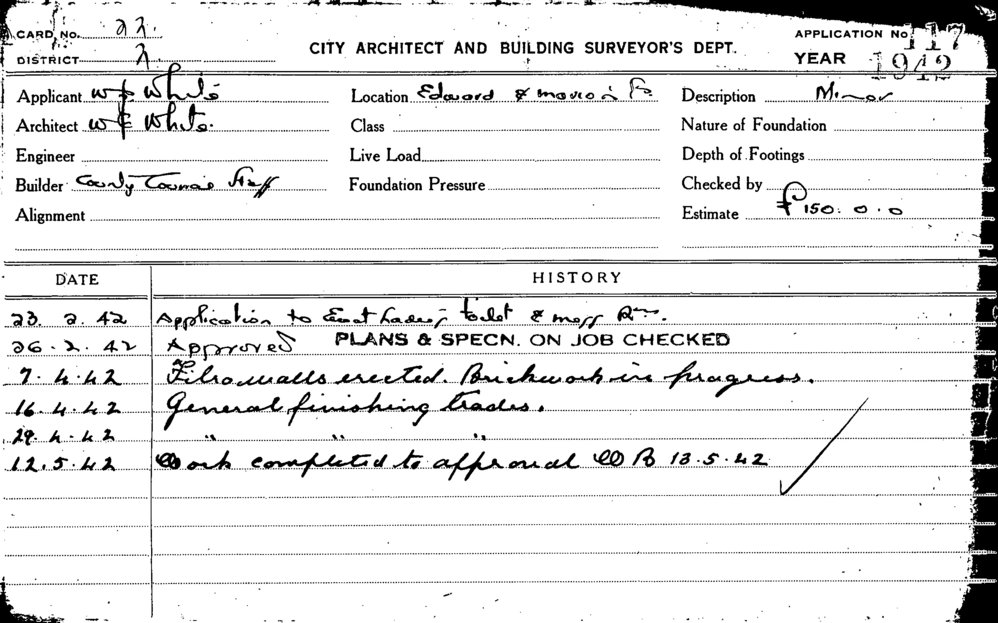 CARD No. 22. CITY ARCHITECT AND BUILDING SURVEYOR'S DEPT. APPLICATION No. 117
DISTRICT 2. YEAR 1942
Applicant W F White Location Edward & Description Minor
Architect W F White. Class Nature of Foundation
Engineer Live Load Depth of Footings
Builder Staff Foundation Pressure Checked by
Alignment Estimate £150. 0. 0
DATE HISTORY
23. 2. 42 Application to Erect Ladies toilet & mess Rm.
26. 2. 42 Approved PLANS & SPECN. ON JOB CHECKED
7. 4. 42 Fibro walls erected. Brickwork in progress.
16. 4. 42 General finishing trades.
29. 4. 42 " " "
12. 5. 42 Work completed to approval 13. 5. 42